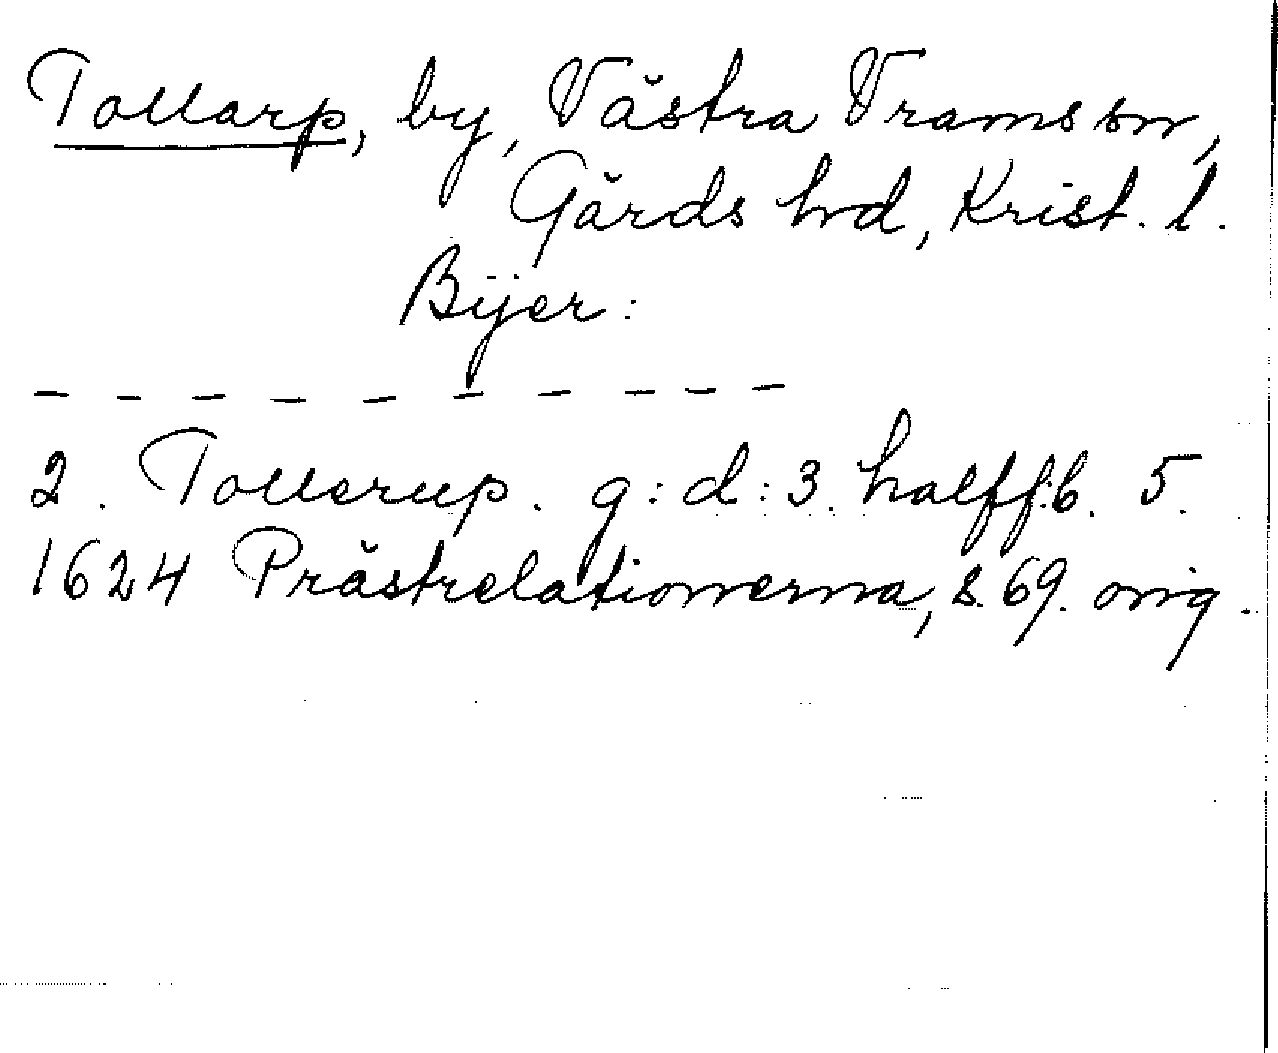 Tollarp, by, Västra Vrams sn,
Gärds hd, Krist. l.
Bÿer:
— — — — — — — — — —
2. Tollerup. g: d: 3. halff:b. 5.
1624 Prästrelationerna, s. 69. orig.